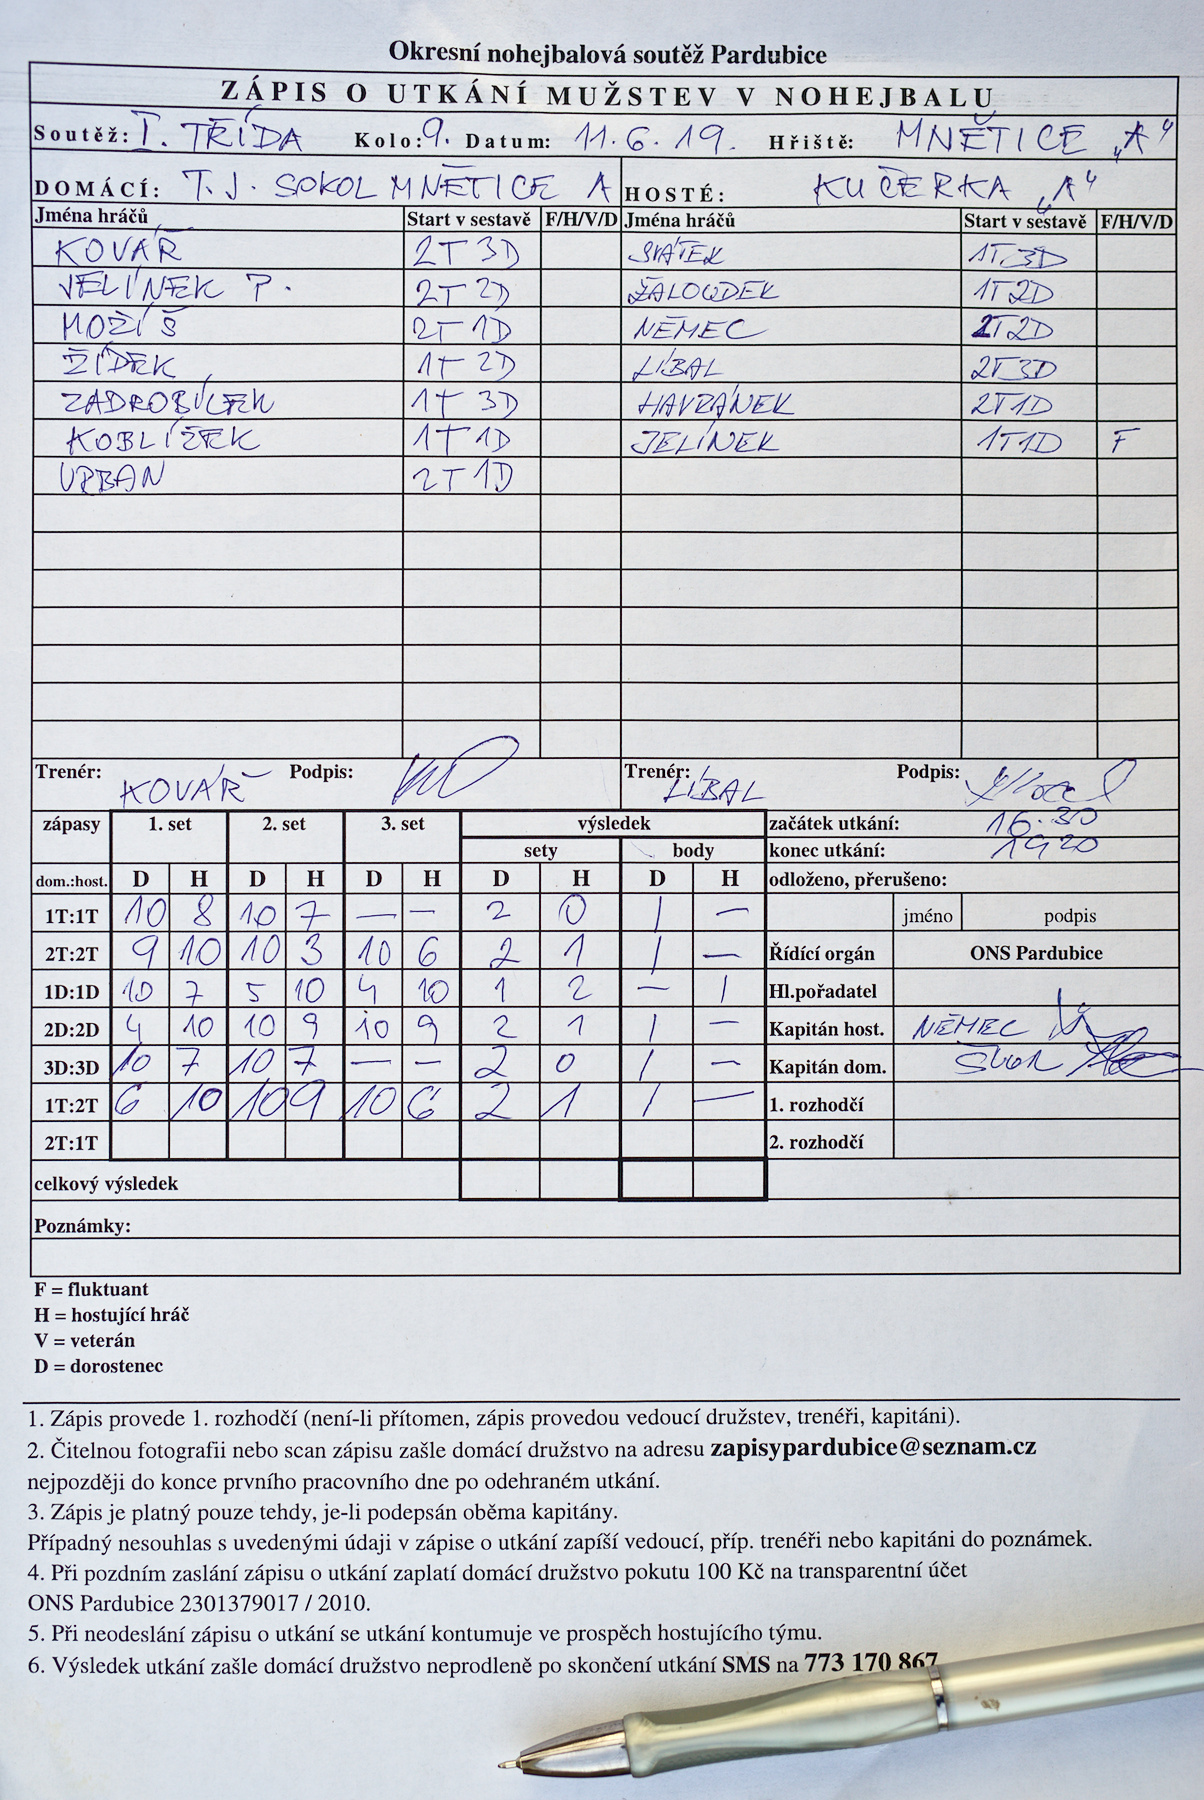 Okresní nohejbalová soutěž Pardubice
ZÁPIS O UTKÁNÍ MUŽSTEV V NOHEJBALU
Soutěž: I. TŘÍDA Kolo: 9. Datum: 11.6.19. Hřiště: MNĚTICE „A"
DOMÁCÍ: T.J. SOKOL MNĚTICE A HOSTÉ: KUČERKA „A"
Jména hráčů Start v sestavě F/H/V/D Jména hráčů Start v sestavě F/H/V/D
KOVÁŘ 2T 3D SVÁTEK 1T3D
JELÍNEK P. 2T 2D ŽALOUDEK 1T2D
MOŽÍŠ 2T 1D NĚMEC 2T2D
ŽÍDEK 1T 2D LÍBAL 2T3D
ZADROBÍLEK 1T 3D HAVRÁNEK 2T1D
KOBLÍŽEK 1T 1D JELÍNEK 1T1D F
URBAN 2T 1D
Trenér: KOVÁŘ Podpis: Trenér: LÍBAL Podpis:
zápasy 1. set 2. set 3. set výsledek začátek utkání: 16.30
sety body konec utkání: 1920
dom.:host. D H D H D H D H D H odloženo, přerušeno:
1T:1T 10 8 10 7 — — 2 0 1 — jméno podpis
2T:2T 9 10 10 3 10 6 2 1 1 — Řídící orgán ONS Pardubice
1D:1D 10 7 5 10 4 10 1 2 — 1 Hl.pořadatel
2D:2D 4 10 10 9 10 9 2 1 1 — Kapitán host. NĚMEC
3D:3D 10 7 10 7 — — 2 0 1 — Kapitán dom.
1T:2T 6 10 10 9 10 6 2 1 1 — 1. rozhodčí
2T:1T 2. rozhodčí
celkový výsledek
Poznámky:
F = fluktuant
H = hostující hráč
V = veterán
D = dorostenec
1. Zápis provede 1. rozhodčí (není-li přítomen, zápis provedou vedoucí družstev, trenéři, kapitáni).
2. Čitelnou fotografii nebo scan zápisu zašle domácí družstvo na adresu zapisypardubice@seznam.cz
nejpozději do konce prvního pracovního dne po odehraném utkání.
3. Zápis je platný pouze tehdy, je-li podepsán oběma kapitány.
Případný nesouhlas s uvedenými údaji v zápise o utkání zapíší vedoucí, příp. trenéři nebo kapitáni do poznámek.
4. Při pozdním zaslání zápisu o utkání zaplatí domácí družstvo pokutu 100 Kč na transparentní účet
ONS Pardubice 2301379017 / 2010.
5. Při neodeslání zápisu o utkání se utkání kontumuje ve prospěch hostujícího týmu.
6. Výsledek utkání zašle domácí družstvo neprodleně po skončení utkání SMS na 773 170 867